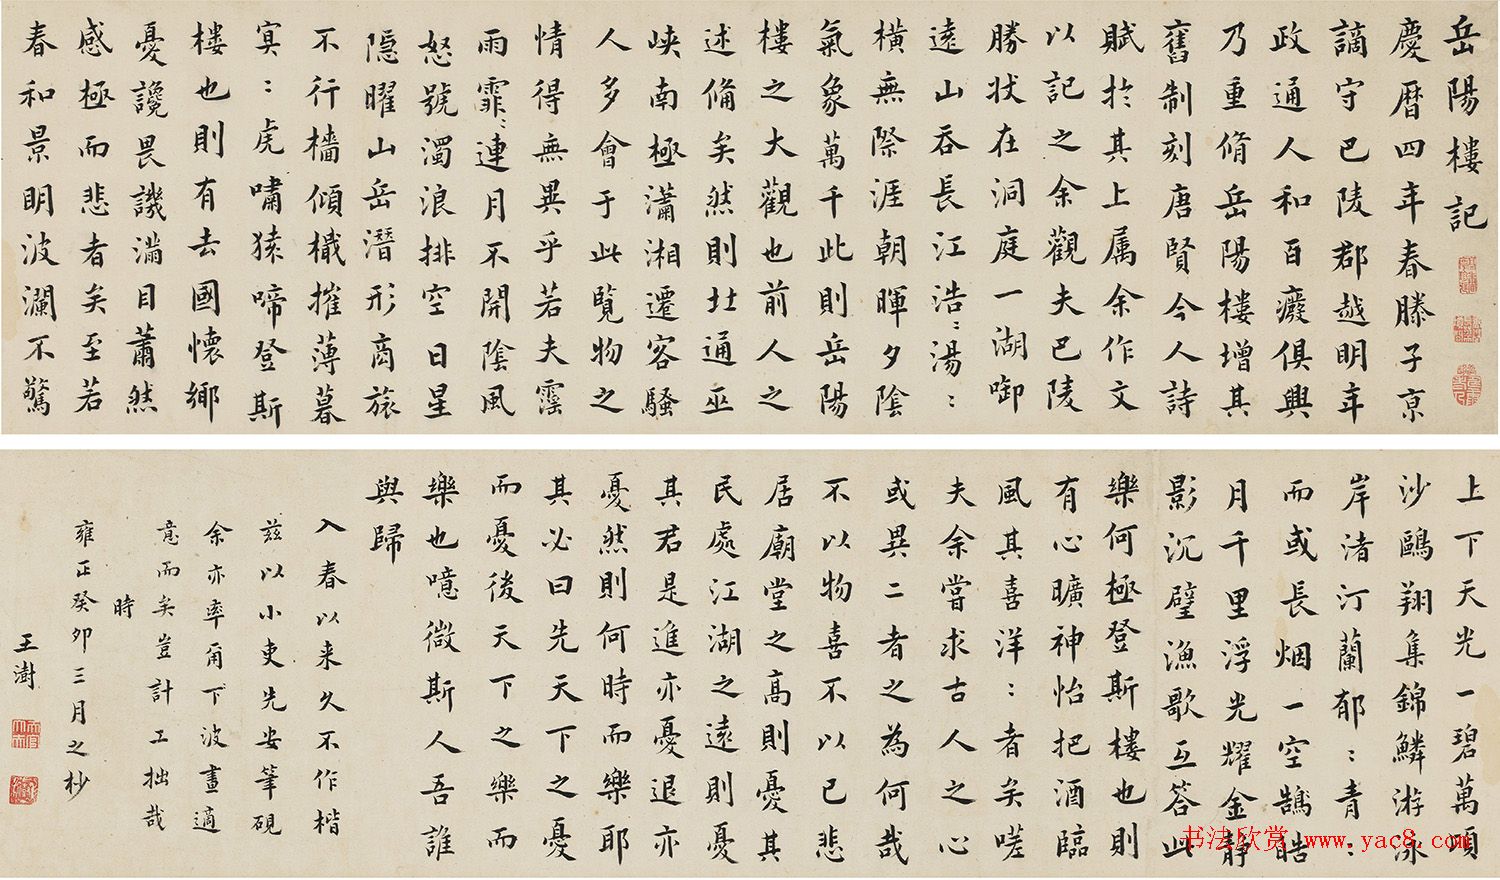 岳陽樓記
慶曆四年春滕子京
謫守巴陵郡越明年
政通人和百癈俱興
乃重脩岳陽樓增其
舊制刻唐賢今人詩
賦於其上属余作文
以記之余觀夫巴陵
勝狀在洞庭一湖啣
遠山吞長江浩:湯:
橫無際涯朝暉夕陰
氣象萬千此則岳陽
樓之大觀也前人之
述備矣然則北通巫
峡南極瀟湘遷客騷
人多會于此覽物之
情得無異乎若夫霪
雨霏:連月不開陰風
怒號濁浪排空日星
隱曜山岳潛形商旅
不行檣傾檝摧薄暮
冥:虎嘯猿啼登斯
樓也則有去國懷鄉
憂讒畏譏滿目蕭然
感極而悲者矣至若
春和景明波瀾不驚
上下天光一碧萬頃
沙鷗翔集錦鱗游泳
岸渚汀蘭郁:青:
而或長烟一空鵠皓
月千里浮光耀金静
影沉璧漁歌互答此
樂何極登斯樓也則
有心曠神怡把酒臨
風其喜洋:者矣嗟
夫余嘗求古人之心
或異二者之為何哉
不以物喜不以己悲
居廟堂之高則憂其
民處江湖之遠則憂
其君是進亦憂退亦
憂然則何時而樂耶
其必曰先天下之憂
而憂後天下之樂而
樂也噫微斯人吾誰
與歸
入春以来久不作楷
兹以小吏先安筆硯
余亦率爾下波畫適
意而矣豈計工拙哉
時
雍正癸卯三月之杪
王澍
书法欣赏 www.yac8.com